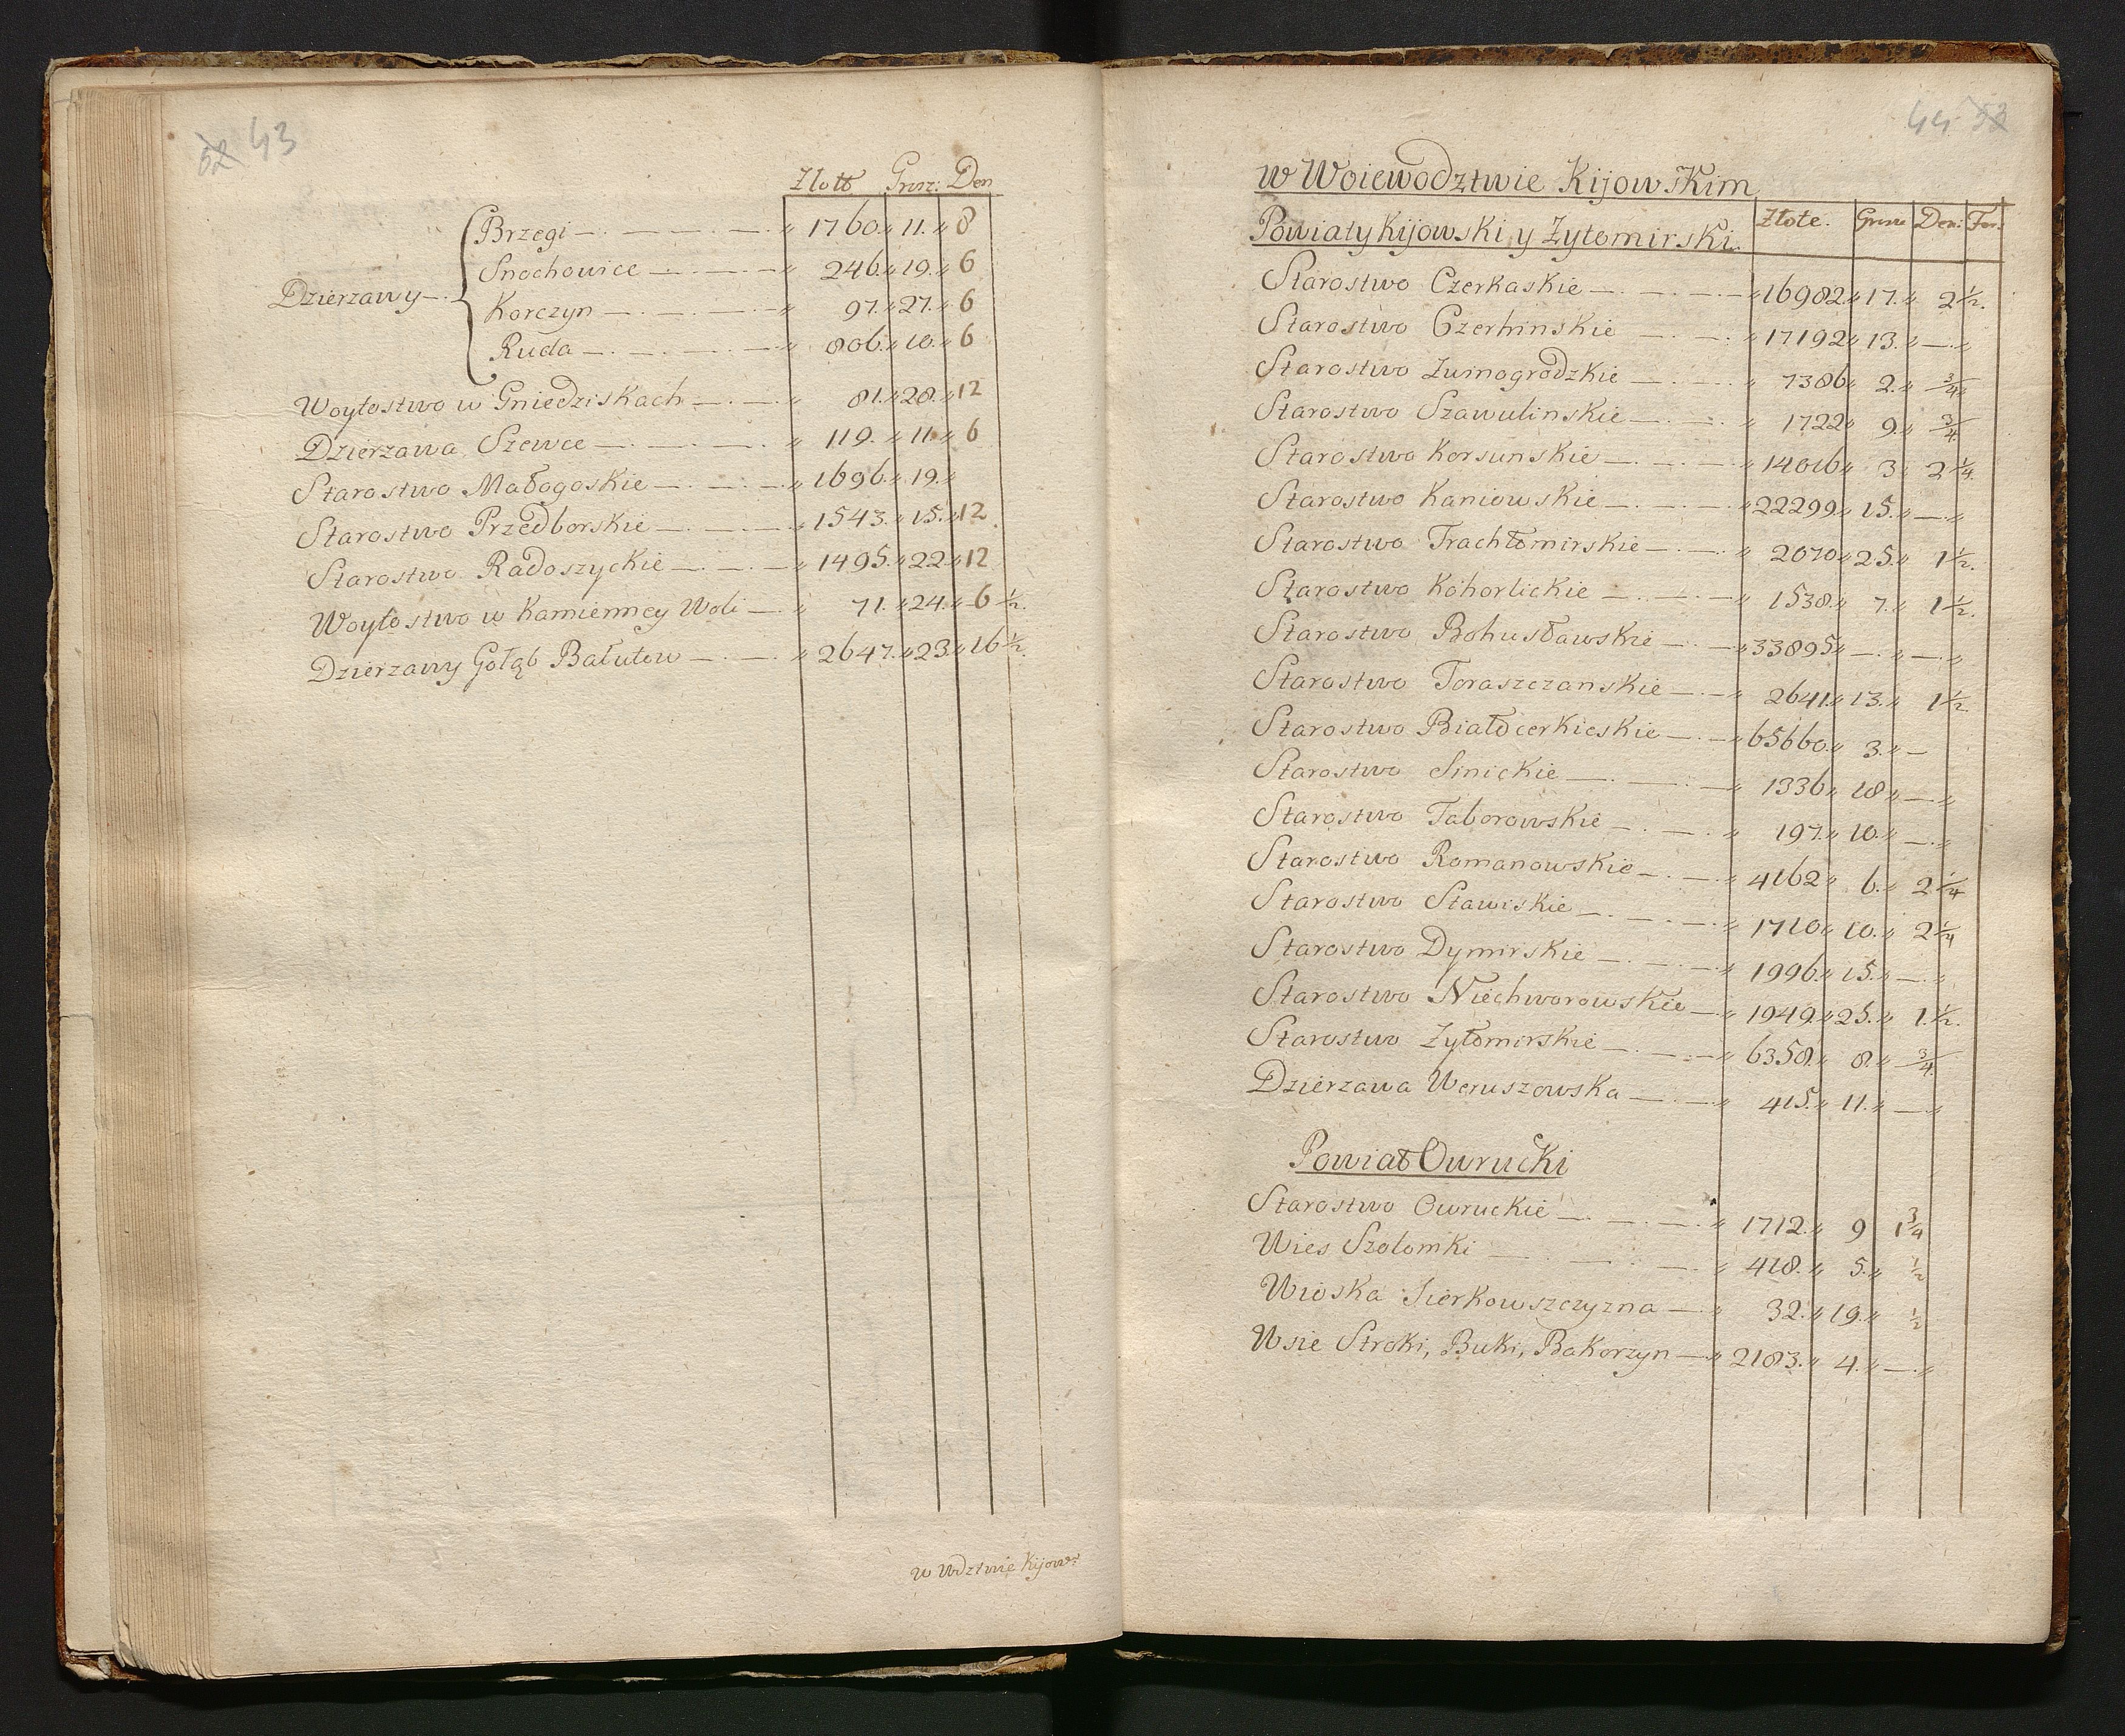 52 43
Złott Grosz: Den
Dzierzawy
Brzegi 1760. 11. 8
Snochowice 246. 19. 6
Korczyn 97. 27. 6
Ruda 806. 10. 6
Woytostwo w Gniedziskach 81. 28. 12
Dzierzawa Szewce 119. 11. 6
Starostwo Małogoskie 1696. 19.
Starostwo Przedborskie 1543. 15. 12
Starostwo Radoszyckie 1495. 22. 12
Woytostwo w Kamienney Woli 71. 24. 6 ½.
Dzierzawy Gołąb Bałutow 2647. 23. 16 ½.
w Wdztwie Kijows:
44 53
w Woiewodztwie Kijowskim
Powiaty Kijowski y Zytomirski. Złote. Grosze Den: Fer:
Starostwo Czerkaskie 16982. 17. 2 ½.
Starostwo Czerhinskie 17192 13. —
Starostwo Zwinogrodzkie 7386 2. ¾
Starostwo Szawulinskie 1722 9. ¾
Starostwo Korsunskie 14016 3. 2 ¼.
Starostwo Kaniowskie 22299. 15. —
Starostwo Trachtomirskie 2070 25. 1 ½.
Starostwo Kohorlickie 1538. 7. 1 ½.
Starostwo Bohusławskie 33895 — —
Starostwo Taraszczanskie 2641. 13. 1 ½.
Starostwo Białocerkieskie 65660. 3. —
Starostwo Sinickie 1336. 18 —
Starostwo Taborowskie 197. 10. —
Starostwo Romanowskie 4162 6. 2 ¼
Starostwo Stawiskie 1710. 10. 2 ¼
Starostwo Dymirskie 1996. 15. —
Starostwo Niechworowskie 1949. 25. 1. ½.
Starostwo Zytomirskie 6358. 8. ¾.
Dzierzawa Weruszowska 415. 11. —
Powiat Owrucki
Starostwo Owruckie 1712. 9 1 ¾
Wies Szołomki 418. 5. ½
Wioska Sierkowszczyzna 32. 19. ½
Wsie Stroki, Buki, Bakorzyn 2183. 4. —